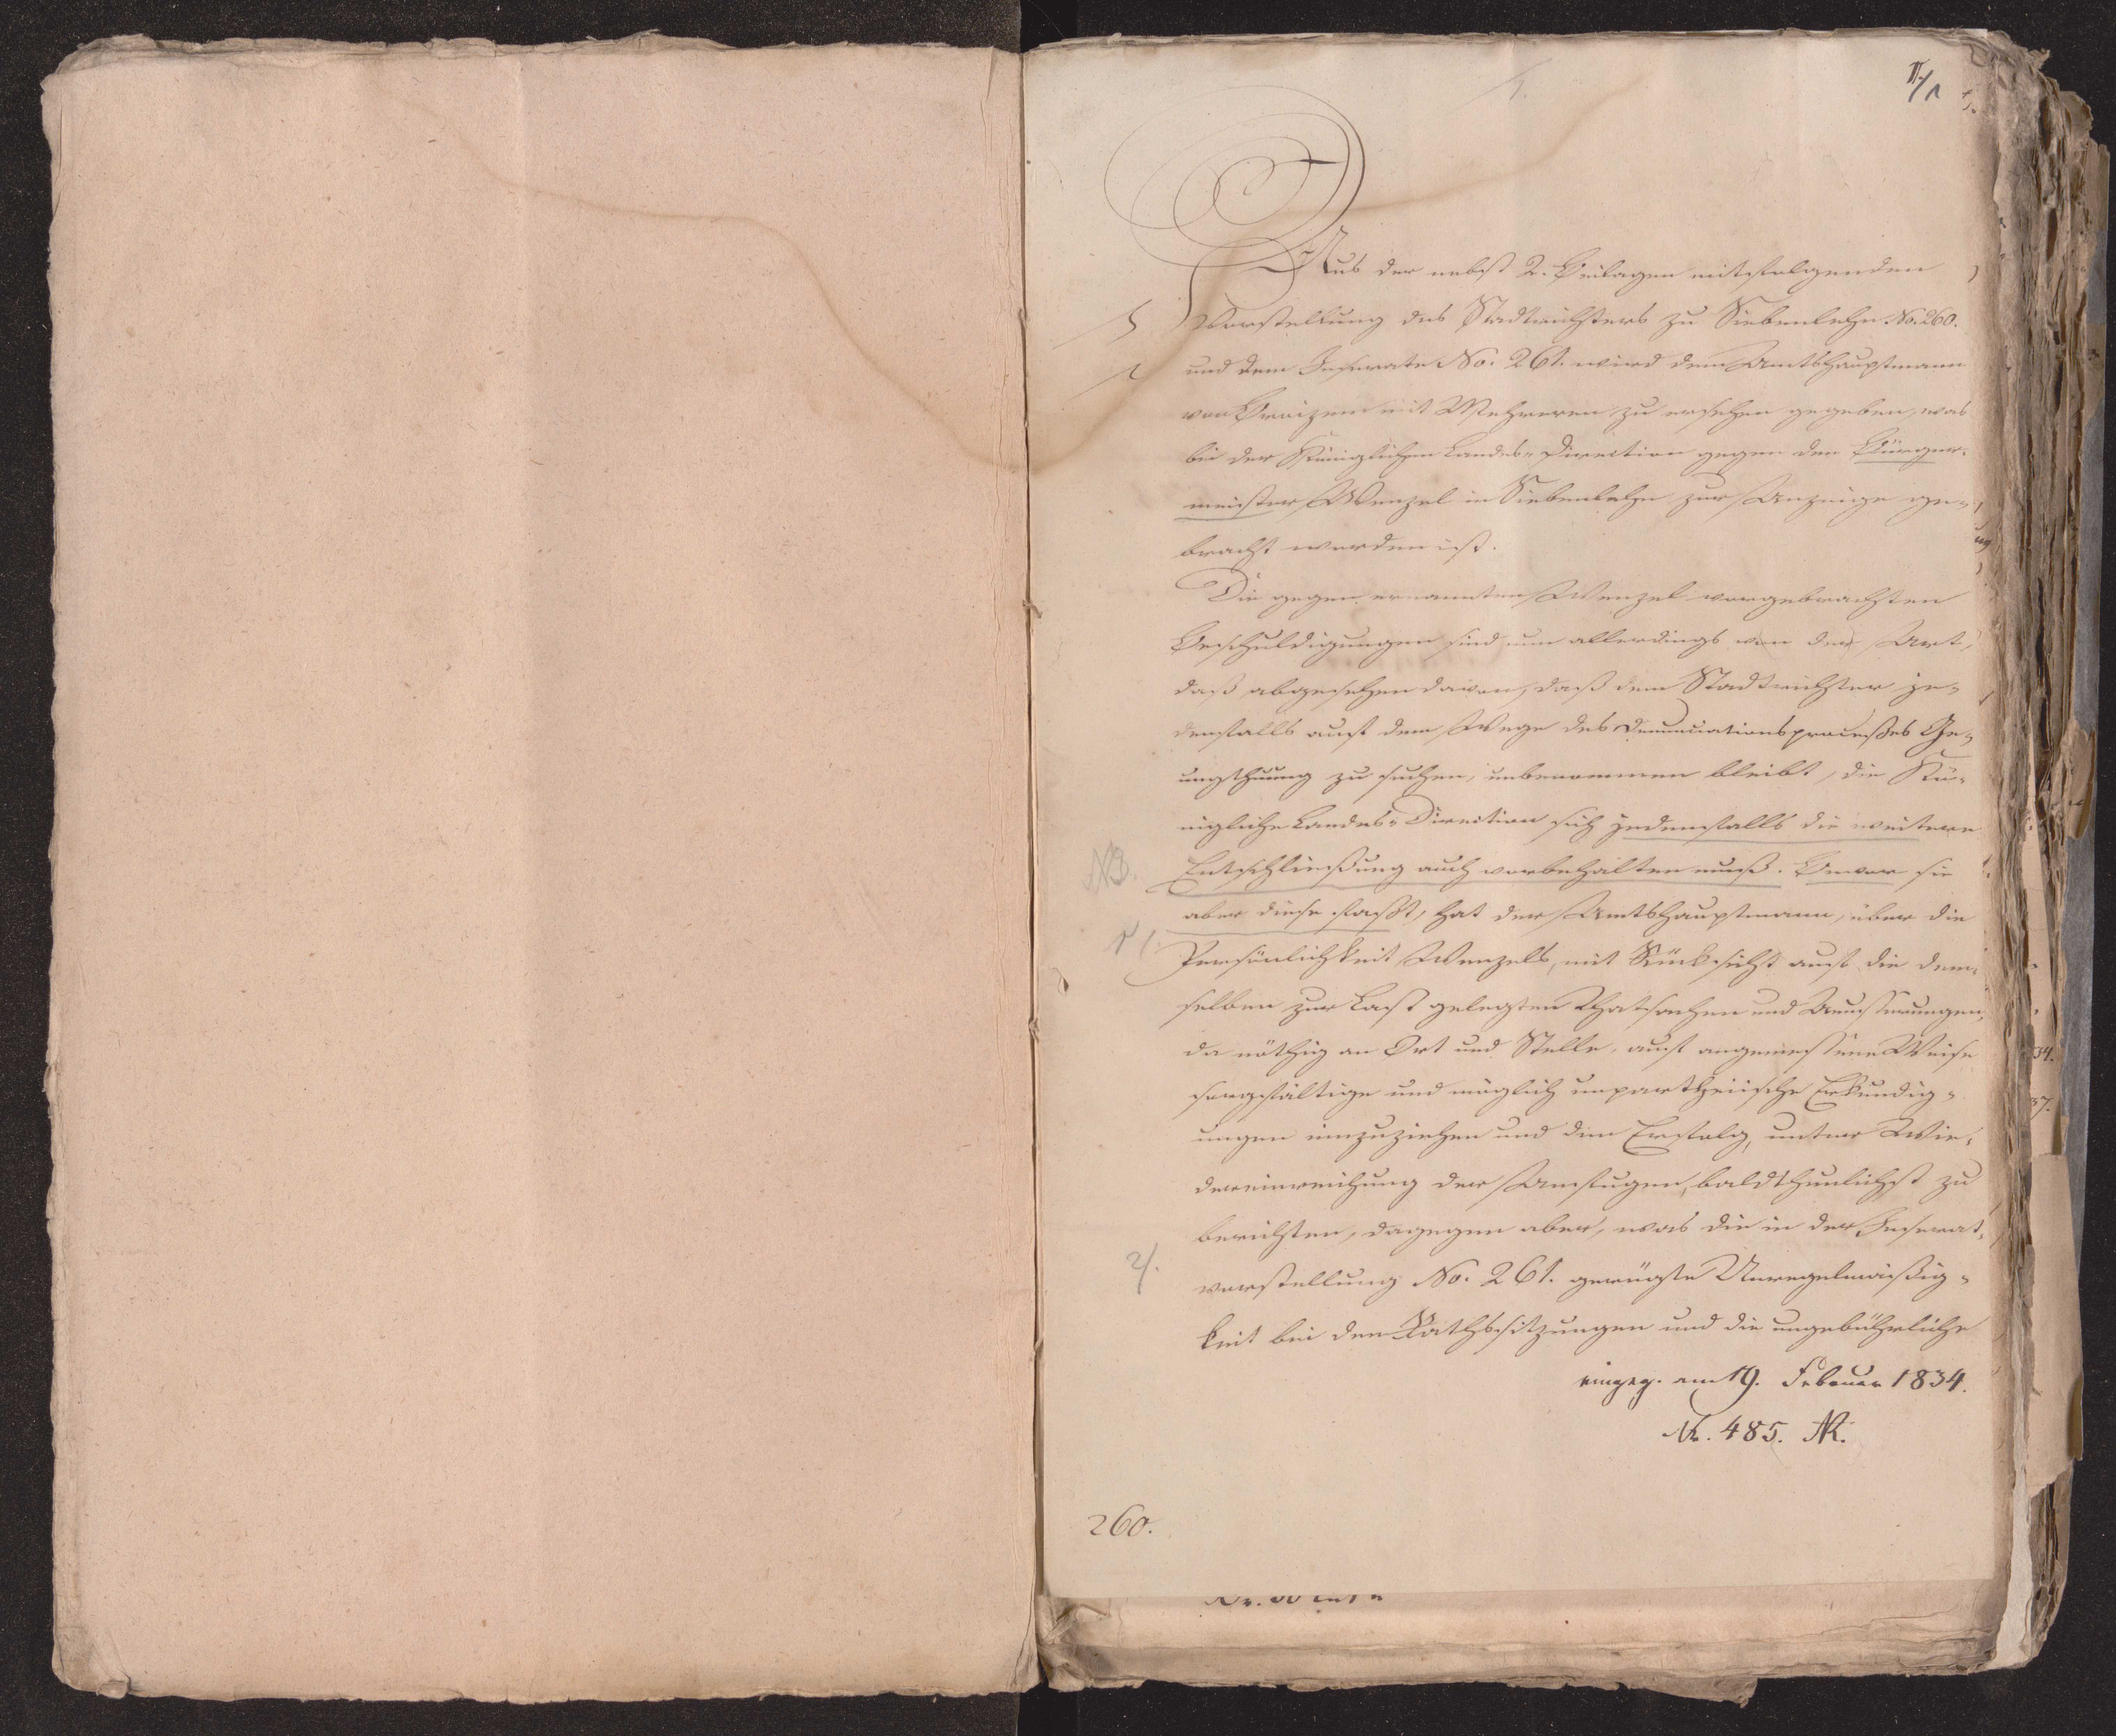 1.
II/1
Aus der nebst 2. Beilagen mitfolgenden
Vorstellung des Stadtrichters zu Siebenlehn No. 260.
und dem Inserate No. 261. wird dem Amtshauptmann
von mit Mehreren zu ersehen gegeben, was
bei der Königlichen Landes-Direction gegen den Bürger-
meister Wenzel in Siebenlehn zur Anzeige ge-
bracht worden ist.
Die gegen ernannten Wenzel vorgebrachten
Beschuldigungen sind nun allerdings von der Art,
daß abgesehen davon, daß dem Stadtrichter je-
denfalls auf dem Wege des Denunciationsprocesses Ge-
nugthuung zu suchen, unbenommen bleibt, die Kö-
nigliche Landes-Direction sich jedenfalls die weitere
NB. Entschließung auch vorbehalten muß. Bevor sie
aber diese faßt, hat der Amtshauptmann, über die
1/. Persönlichkeit Wenzels, mit Rücksicht auf die dem-
selben zur Last gelegten Thatsachen und Aeusserungen,
da nöthig an Ort und Stelle, auf angemessene Weise
sorgfältige und möglich unpartheiische Erkundig-
ungen einzuziehen und den Erfolg, unter Wie-
dereinreichung der Anfugen, baldthunlichst zu
berichten, dagegen aber, was die in der Inserat-
2/. vorstellung No. 261. gerügte Unregelmäßig-
keit bei den Rathssitzungen und die ungebührliche
eingeg. am 19. Februar 1834.
Nr. 485. AR.
260.